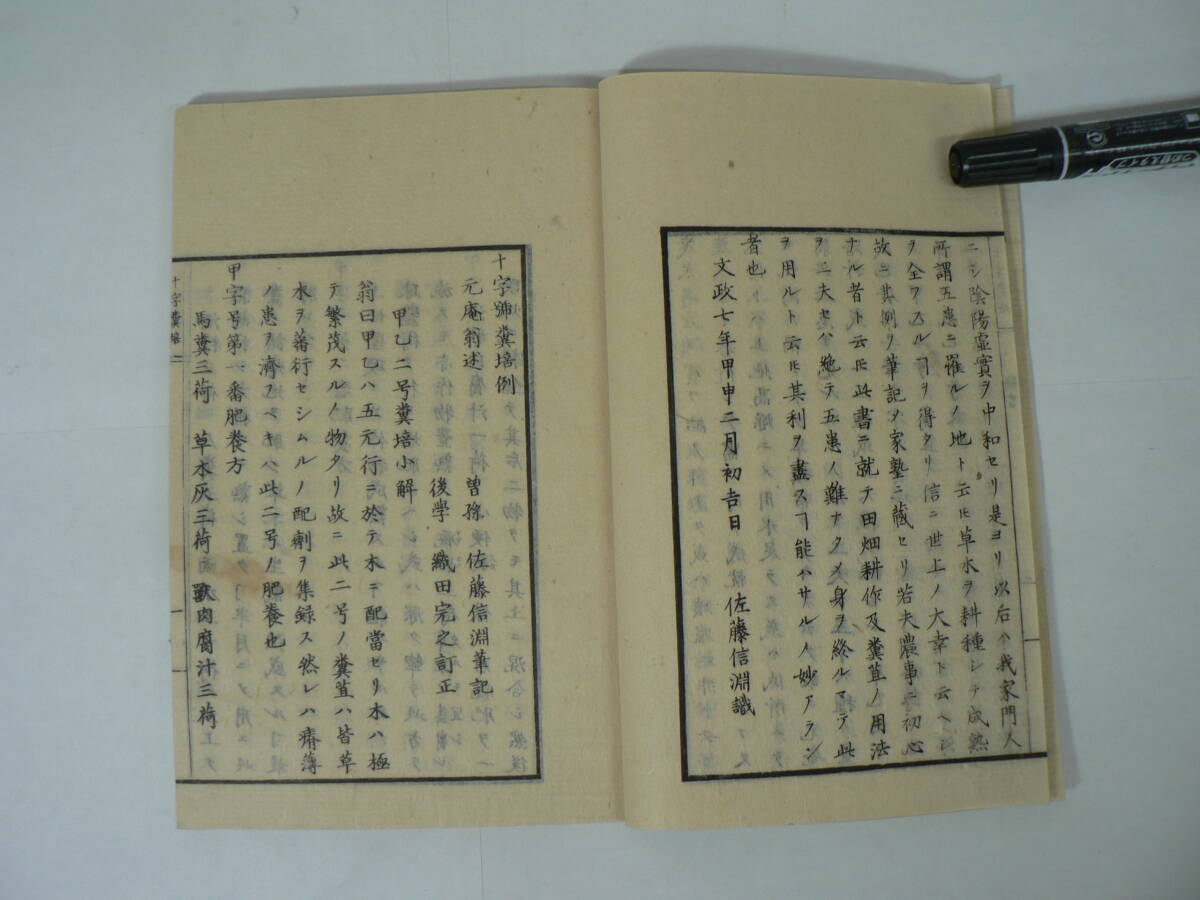 ニシ陰陽虚實ヲ中和セリ是ヨリ以后ハ我家門人
所謂五患ニ罹ルノ地ト云ヒ草木ヲ耕種シテ成熟
ヲ全フスルヿヲ得タリ信ニ世上ノ大幸ト云ヘシ
故ニ其例ノ筆記ノ家塾ニ蔵セリ若夫農事ニ初心
ナル者ト云ヒ此書ニ就テ田畑耕作及糞苴ノ用法
ヲ工夫セハ絶テ五患ノ難ナクメ身ヲ終ルマテ此
ヲ用ルト云ヒ其利ヲ盡スヿ能ハサルノ妙アラン
者也
文政七年甲申二月初吉日 佐藤信淵識
十字號糞培例
元庵翁述 曽孫 佐藤信淵筆記
後學 織田完之訂正
甲乙二号糞培小解
翁曰甲乙ハ五元行ニ於テ木ニ配當セリ木ハ極
テ繁茂スルノ物タリ故ニ此二号ノ糞苴ハ皆草
木ヲ蕃行セシムルノ配劑ヲ集録ス然レハ瘠薄
ノ患ヲ濟フヘキハ此二号ノ肥養也
甲字号第一番肥養方
馬糞三荷 草木灰三荷 獸肉腐汁三荷
十字糞培